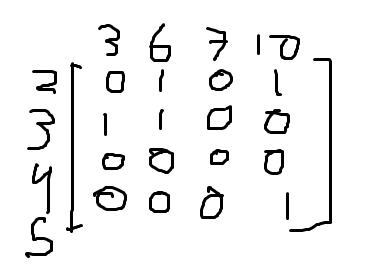 3 6 7 10
2 [ 0 1 0 1 ]
3 [ 1 1 0 0 ]
4 [ 0 0 0 0 ]
5 [ 0 0 0 1 ]